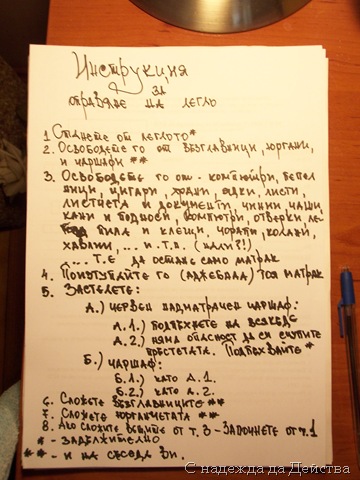 Инструкция
за
оправяне на легло
1. Станете от леглото*
2. Освободете го от възглавници, юргани,
и чаршафи **
3. Освободете го от - компютри, пепел
ници, цигари, храни, ядки, листи,
листчета и документи, чинии, чаши,
кани и подноси, компютри, отверки, ле-
пила и клещи, чорапи, колани,
хавлии, ... и т.н. (нали?!)
... т.е да остане само матрак
4. Поизтупайте го (аджебааа) тоя матрак
5. Застелете:
А.) червен надматрачен чаршаф:
А.1.) подпъхнете на всякъде
А.2.) няма опасност да си счупите
пръстета. Подпъхвайте *
Б.) чаршаф:
Б.1.) като А.1.
Б.2.) като А.2.
6. Сложете възглавниците **
7. Сложете юрганчетата **
8. Ако сложите вещите от т.3 - започнете от т.1
* - задължително
** - и на съседа ви.
С надежда да Действа